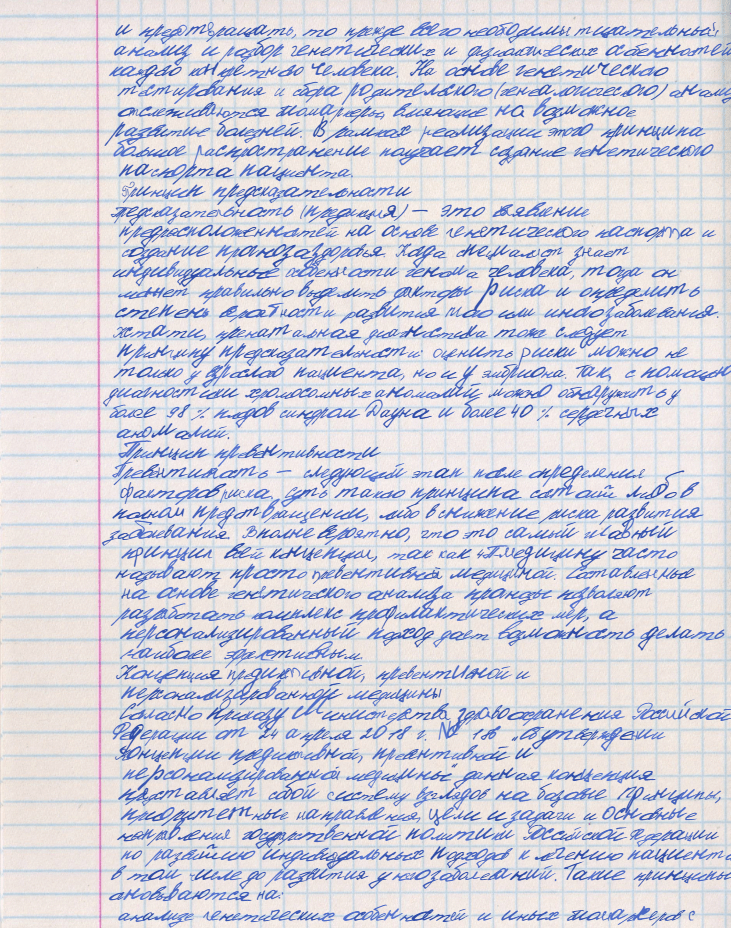 и предотвращать, то прежде всего необходимы тщательный
анализ и разбор генетических и физиологических особенностей
каждого конкретного человека. На основе генетического
тестирования и сбора родительского (генеалогического) анамнеза
отслеживаются биомаркеры, влияющие на возможное
развитие болезней. В рамках реализации этого принципа
большое распространение получает создание генетического
паспорта пациента.
Принцип предсказательности
Предсказательность (предикция) — это выявление
предрасположенностей на основе генетического паспорта и
создание прогноза здоровья. Когда специалист знает
индивидуальные особенности генома человека, тогда он
может правильно выделить факторы риска и определить
степень вероятности развития того или иного заболевания.
Кстати, пренатальная диагностика тоже следует
принципу предсказательности: оценить риски можно не
только у взрослого пациента, но и у эмбриона. Так, с помощью
диагностики хромосомных аномалий можно обнаружить у
более 98 % плодов синдром Дауна и более 40 % сердечных
аномалий.
Принцип превентивности
Превентивность — следующий этап после определения
факторов риска. Суть такого принципа состоит либо в
полном предотвращении, либо в снижение риска развития
заболевания. Вполне вероятно, что это самый главный
принцип всей концепции, так как 4П медицину часто
называют просто превентивной медициной. Составленные
на основе генетического анализа прогнозы позволяют
разработать комплекс профилактических мер, а
персонализированный подход дает возможность делать
наиболее эффективным
Концепция предиктивной, превентивной и
персонализированной медицины
Согласно Приказу Министерства здравоохранения Российской
Федерации от 24 апреля 2018 г. № 186 "Об утверждении
Концепции предиктивной, превентивной и
персонализированной медицины" данная концепция
представляет собой систему взглядов на базовые принципы,
приоритетные направления, цели и задачи и основные
направления государственной политики Российской Федерации
по развитию индивидуальных подходов к лечению пациента
в том числе до развития у него заболеваний. Такие принципы
основываются на:
анализе генетических особенностей и иных биомаркеров с